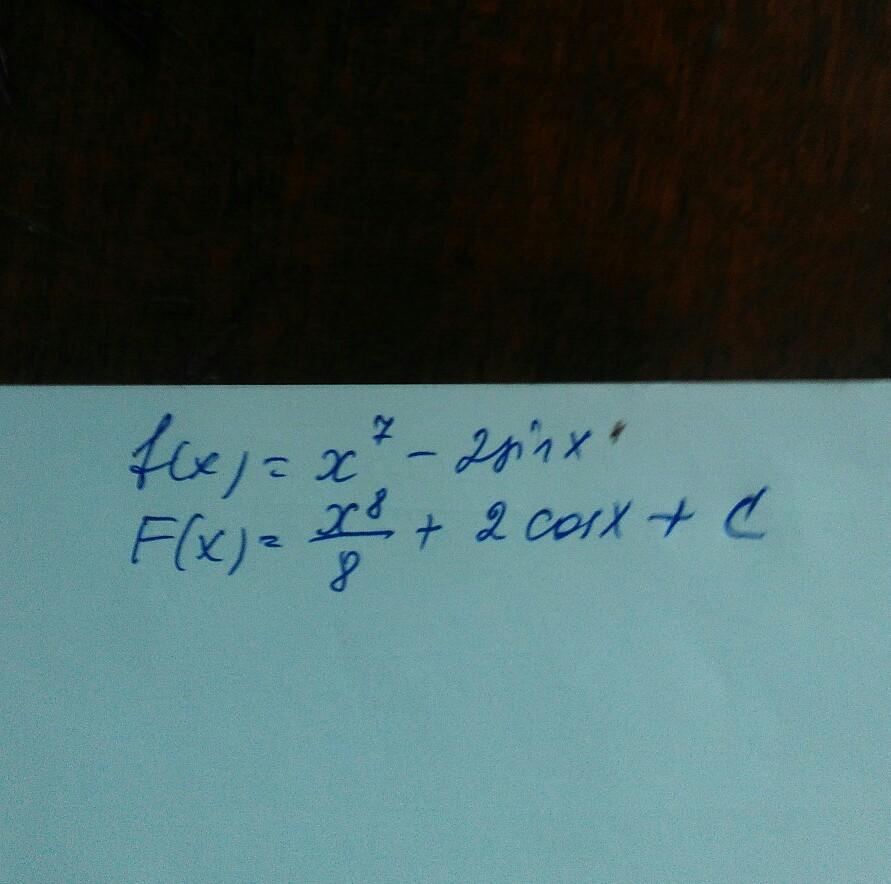 f(x) = x⁷ - 2sinx
F(x) = x⁸/8 + 2 cosx + C